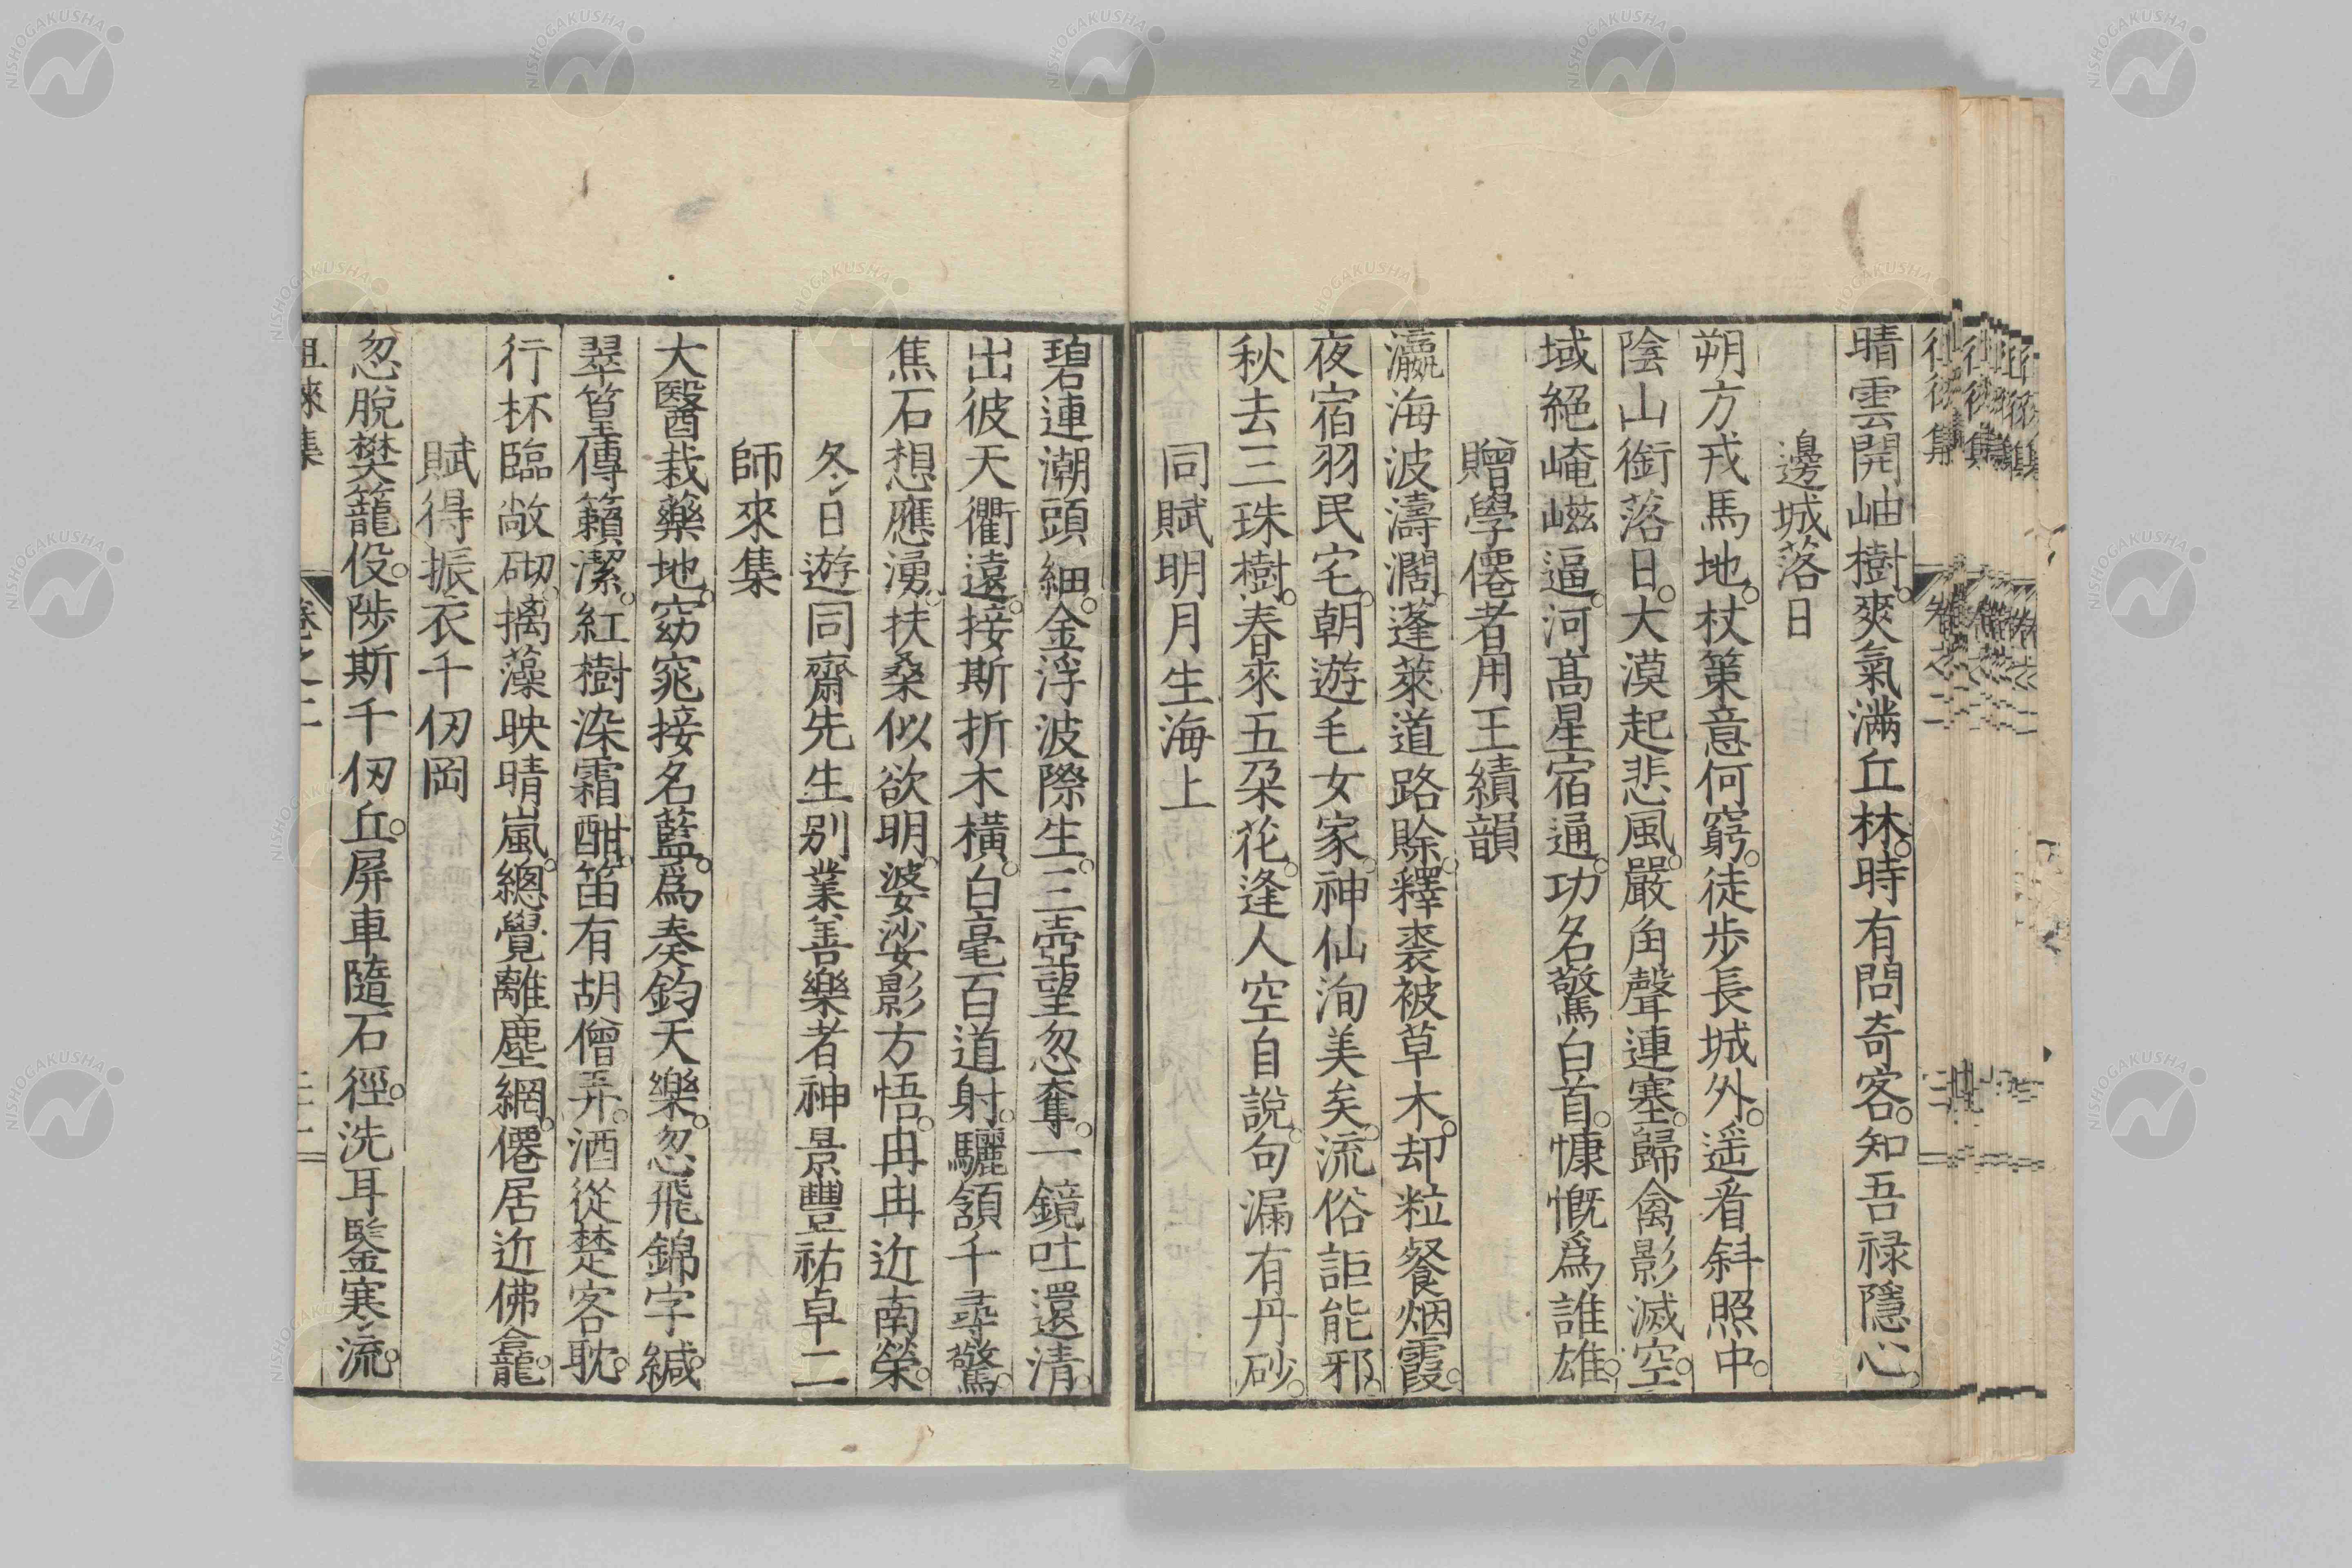 晴雲開岫樹。爽氣滿丘林。時有問奇客。知吾祿隱心。
邊城落日
朔方戎馬地。杖策意何窮。徒步長城外。遥看斜照中。
陰山銜落日。大漠起悲風。嚴角聲連塞。歸禽影滅空。
域絕崦嵫逼。河髙星宿通。功名驚白首。慷慨爲誰雄。
贈學僊者用王績韻
瀛海波濤濶。蓬萊道路賒。釋裘被草木。却粒餐烟霞。
夜宿羽民宅。朝遊毛女家。神仙洵美矣。流俗詎能邪。
秋去三珠樹。春來五朶花。逢人空自說。句漏有丹砂。
同賦明月生海上
碧連潮頭細。金浮波際生。三壺望忽奪。一鏡吐還清。
出彼天衢遠。接斯折木橫。白毫百道射。驪頷千尋驚。
焦石想應湧。扶桑似欲明。婆娑影方悟。冉冉近南榮。
冬日遊同齋先生別業善樂者神景豐祐卓二
師來集
大醫栽藥地。窈窕接名藍。爲奏鈞天樂。忽飛錦字緘。
翠篁傳籟潔。紅樹染霜酣。笛有胡僧弄。酒從楚客耽。
行杯臨敞砌。摛藻映晴嵐。總覺離塵網。僊居近佛龕。
賦得振衣千仞岡
忽脫樊籠役。陟斯千仞丘。屏車隨石徑。洗耳鑒寒流。
徂徠集 卷之二 二十一
NISHOGAKUSHA